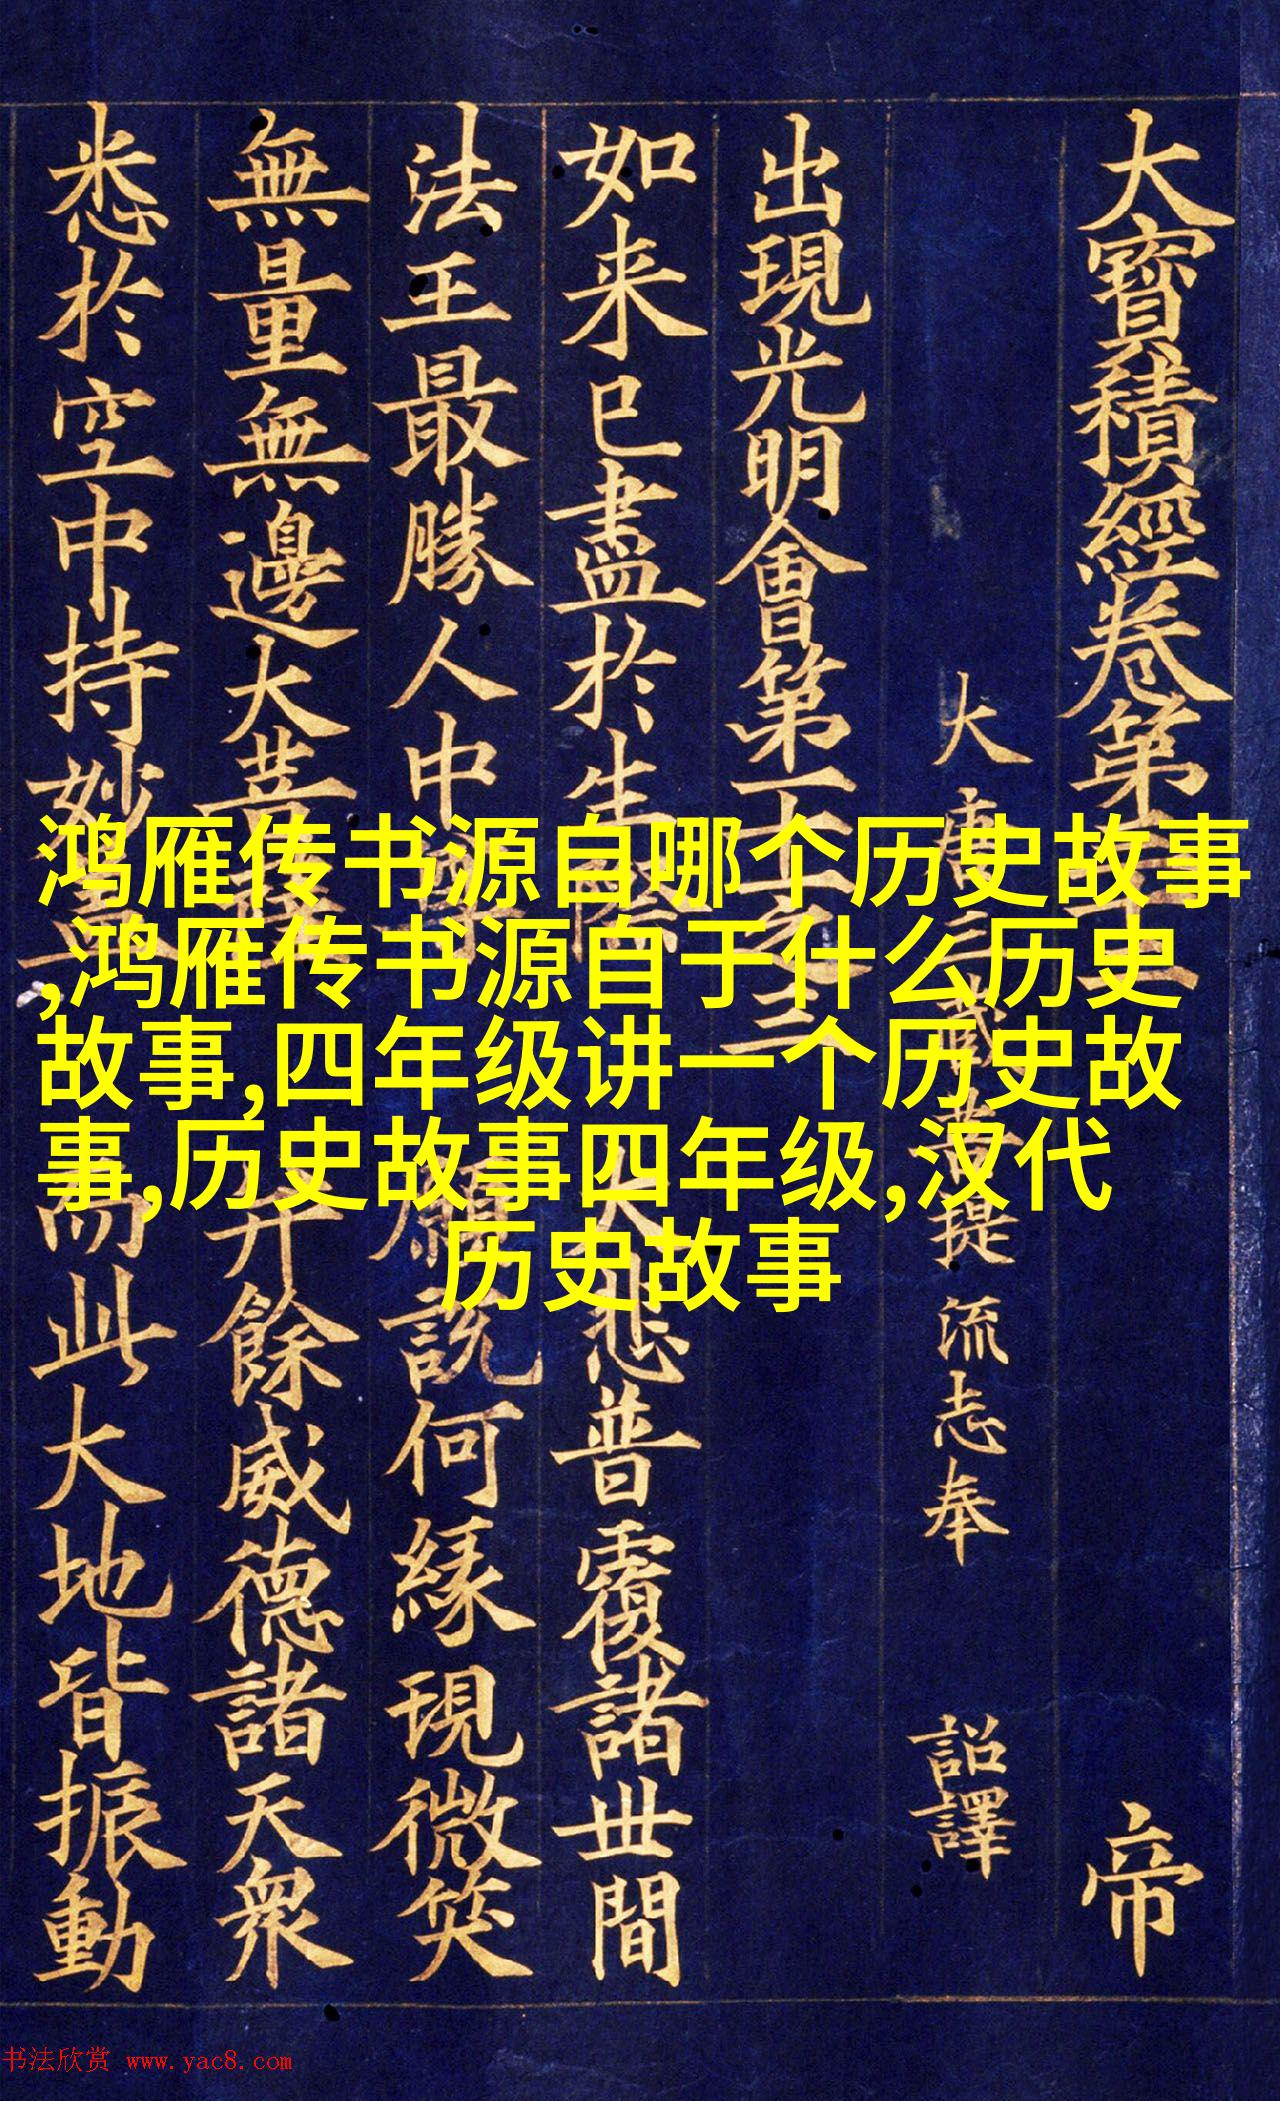 大寶積經卷第 帝
大唐三藏菩提流志奉 詔譯
出現光明會第十一之三
如来已盡於生 大悲普覆諸世間
法王最勝人中尊 願說何緣現微笑
無量無邊大菩薩 并餘威德諸天衆
悉於空中持妙蓋 而此大地皆振動
鸿雁传书源自哪个历史故事
,鸿雁传书源自于什么历史
故事,四年级讲一个历史故
事,历史故事四年级,汉代
历史故事
书法欣赏 www.yac8.com